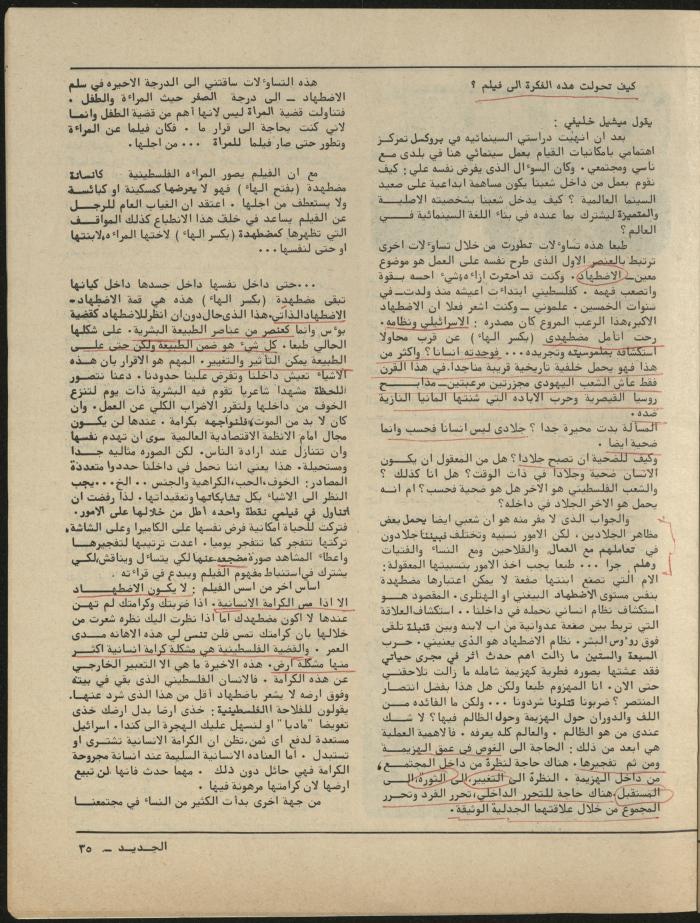 كيف تحولت هذه الفكرة الى فيلم ؟
يقول ميشيل خليفي :
بعد ان انهيت دراستي السينمائيه في بروكسل تمركز
اهتمامي بامكانيات القيام بعمل سينمائي هنا في بلدي مع
ناسي ومجتمعي . وكان السوءال الذى يفرض نفسه علي : كيف
نقوم بعمل من داخل شعبنا يكون مساهمة ابداعية على صعيد
السينما العالمية ؟ كيف يدخل شعبنا بشخصيته الاصليــة
والمتميزة ليشترك بما عنده في بناء اللغة السينمائية فــي
العالم ؟
طبعا هذه تساوءلات تطورت من خلال تساوءلات اخرى
ترتبط بالعنصر الاول الذى طرح نفسه على العمل هو موضوع
معين ــ الاضطهاد . وكنت قد احترت ازاءه شيء احسه بـقوة
واتصعب فهمه . كفلسطيني ابتداءت اعيشه منذ ولدت ــ في
سنوات الخمسين . علموني ــ وكنت اشعر فعلا ان الاضطهاد
الاكبر، هذا الرعب المروع كان مصدره : الاسرائيلي ونظامه .
رحت اتأمل مضطهدى (بكسر الهاء) عن قرب محاولا
استكشافه بملموسيته وتجريده ... فوجدته انسانا ؟ واكثر من
هذا فهو يحمل خلفية تاريخية قريبة مناجدا. في هذا القرن
فقط عاش الشعب اليهودى مجزرتين مرعبتين ــ مذابـــح
روسيا القيصرية وحرب الاباده التي شنتها المانيا النازية
ضده .
المسألة بدت محيرة جدا ؟ جلادى ليس انسانا فحسب وانما
ضحية ايضا .
وكيف للضحية ان تصبح جلادا؟ هل من المعقول ان يكون
الانسان ضحية وجلادا في ذات الوقت؟ هل انا كذلك ؟
والشعب الفلسطيني هو الاخر هل هو ضحية فحسب؟ ام انـه
يحمل هو الاخر الجلاد في داخله؟
والجواب الذى لا مفر منه هو ان شعبي ايضا يحمل بعض
مظاهر الجلادين . لكن الامور نسبيه وتختلف فبيننا جلادون
في تعاملهم مع العمال والفلاحين ومع النساء والفتيات
وهلم جرا ... طبعا يجب اخذ الامور بنسبيتها المعقولة :
الام التي تصفع ابنتها صفعة لا يمكن اعتبارها مضطهدة
بنفس مستوى الاضطهاد البيغني او الهتلرى . المقصود هــو
استكشاف نظام انساني نحمله في داخلنا .. استكشاف العلاقة
التي تربط بين صفعة عدوانية من اب لابنه وبين قنبلة تلقى
فوق روءوس البشر . نظام الاضطهاد هو الذى يعنيني . حــرب
السبعة والستين ما زالت اهم حدث اثر في مجرى حياتي
فقد عشتها بصوره فطرية كهزيمة شامله ما زالت تلاحقنـي
حتى الان . انا المهزوم طبعا ولكن هل هذا بفضل انتصار
المنتصر ؟ ضربونا قتلونا شردونا ... ولكن ما الفائده مــن
اللف والدوران حول الهزيمة وحول الظالم فيها ؟ لا شــك
عندى من هو الظالم . والعالم كله يعرفه . فالاهمية العملية
هي ابعد من ذلك : الحاجة الى الغوص في عمق الهزيمــة
ومن ثم تفجيرها . هناك حاجة لنظرة من داخل المجتمــع ،
من داخل الهزيمة . النظرة الى التغيير، الى الثورة، الــى
المستقبل . هناك حاجة للتحرر الداخلي، تحرر الفرد وتحرر
المجموع من خلال علاقتهما الجدلية الوثيقة .
هذه التساوءلات ساقتني الى الدرجة الاخيره في سلم
الاضطهاد ــ الى درجة الصفر حيث المراءة والطفل .
فتناولت قضية المرأة ليس لانها أهم من قضية الطفل وانما
لاني كنت بحاجة الى قرار ما . فكان فيلما عن المراءة
وتطور حتى صار فيلما للمرأة ... من اجلها .
مع ان الفيلم يصور المراءه الفلسطينية كانسانة
مضطهدة (بفتح الهاء) فهو لا يعرضها كمسكينة او كبائسة
ولا يستعطف من اجلها . اعتقد ان الغياب العام للرجــل
عن الفيلم يساعد في خلق هذا الانطباع كذلك المواقــف
التي تظهرها كمضطهدة (بكسر الهاء) لاختها المراءه، لابنتها
او حتى لنفسها ...
...حتى داخل نفسها داخل جسدها داخل كيانها
تبقى مضطهدة (بكسر الهاء) هذه هي قمة الاضطهاد ــ
الاضطهاد الذاتي . هذا الذى حال دون ان انظر للاضطهاد كقضية
بوءس وانما كعنصر من عناصر الطبيعة البشرية . على شكلها
الحالي طبعا . كل شيء هو ضمن الطبيعة ولكن حتى علــى
الطبيعة يمكن التأثير والتغيير . المهم هو الاقرار بان هــذه
الاشياء تعيش داخلنا وتفرض علينا حدودنا . دعنا نتصــور
اللحظة مشهدا شاعريا تقوم فيه البشرية ذات يوم لتنزع
الخوف من داخلها ولتقرر الاضراب الكلي عن العمل . وان
كان لا بد من الموت فلنواجهه بكرامة . عندها لن يكــون
مجال امام الانظمة الاقتصادية العالمية سوى ان تهدم نفسها
وان تتنازل عند ارادة الناس . لكن الصوره مثاليه جــدا
ومستحيلة . هذا يعني اننا نحمل في داخلنا حددوا متعددة
المصادر : الخوف، الحب، الكراهية والجنس .. الخ ... يجب
النظر الى الاشياء بكل تشابكاتها وتعقيداتها . لذا رفضت ان
اتناول في فيلمي نقطة واحده اطل من خلالها على الامور .
فتركت للحياة امكانية فرض نفسها على الكاميرا وعلى الشاشة،
تركتها تتفجر كما تتفجر يوميا . اعدت ترتيبها لتفجيرهــا
واعطاء المشاهد صورة مضجعه عنها لكي يتساءل ويناقش، لكي
يشترك في استنباط مفهوم الفيلم ويبدع في قراءته .
اساس اخر من اسس الفيلم : لا يكــون الاضطهــــاد
الا اذا مس الكرامة الانسانية . اذا ضربتك وكرامتك لم تهــن
عندها لا اكون مضطهدك اما اذا نظرت اليك نظره شعرت من
خلالها بان كرامتك تمس فلن تنسى لي هذه الاهانه مــدى
العمر . والقضية الفلسطينية هي مشكلة كرامة انسانية اكثــر
منها مشكلة ارض . هذه الاخيرة ما هي الا التعبير الخارجي
عن هذه الكرامة . فالانسان الفلسطيني الذى بقي في بيته
وفوق ارضه لا يشعر باضطهاد اقل من هذا الذى شرد عنهــا .
يقولون للفلاحة الفلسطينية : خذى ارضا بدل ارضك خذى
تعويضا "ماديا" او لنسهل عليك الهجرة الى كندا . اسرائيل
مستعدة لدفع اى ثمن، تظن ان الكرامة الانسانية تشتـرى او
تستبدل . أما العناده الانسانية السليمة عند انسانة مجروحة
الكرامة فهي حائل دون ذلك . مهما حدث فانها لن تبيع
ارضها لان كرامتها مرهونة فيها .
من جهة اخرى بدأت الكثير من النساء في مجتمعنـــا
الجـديـد ــ ٣٥